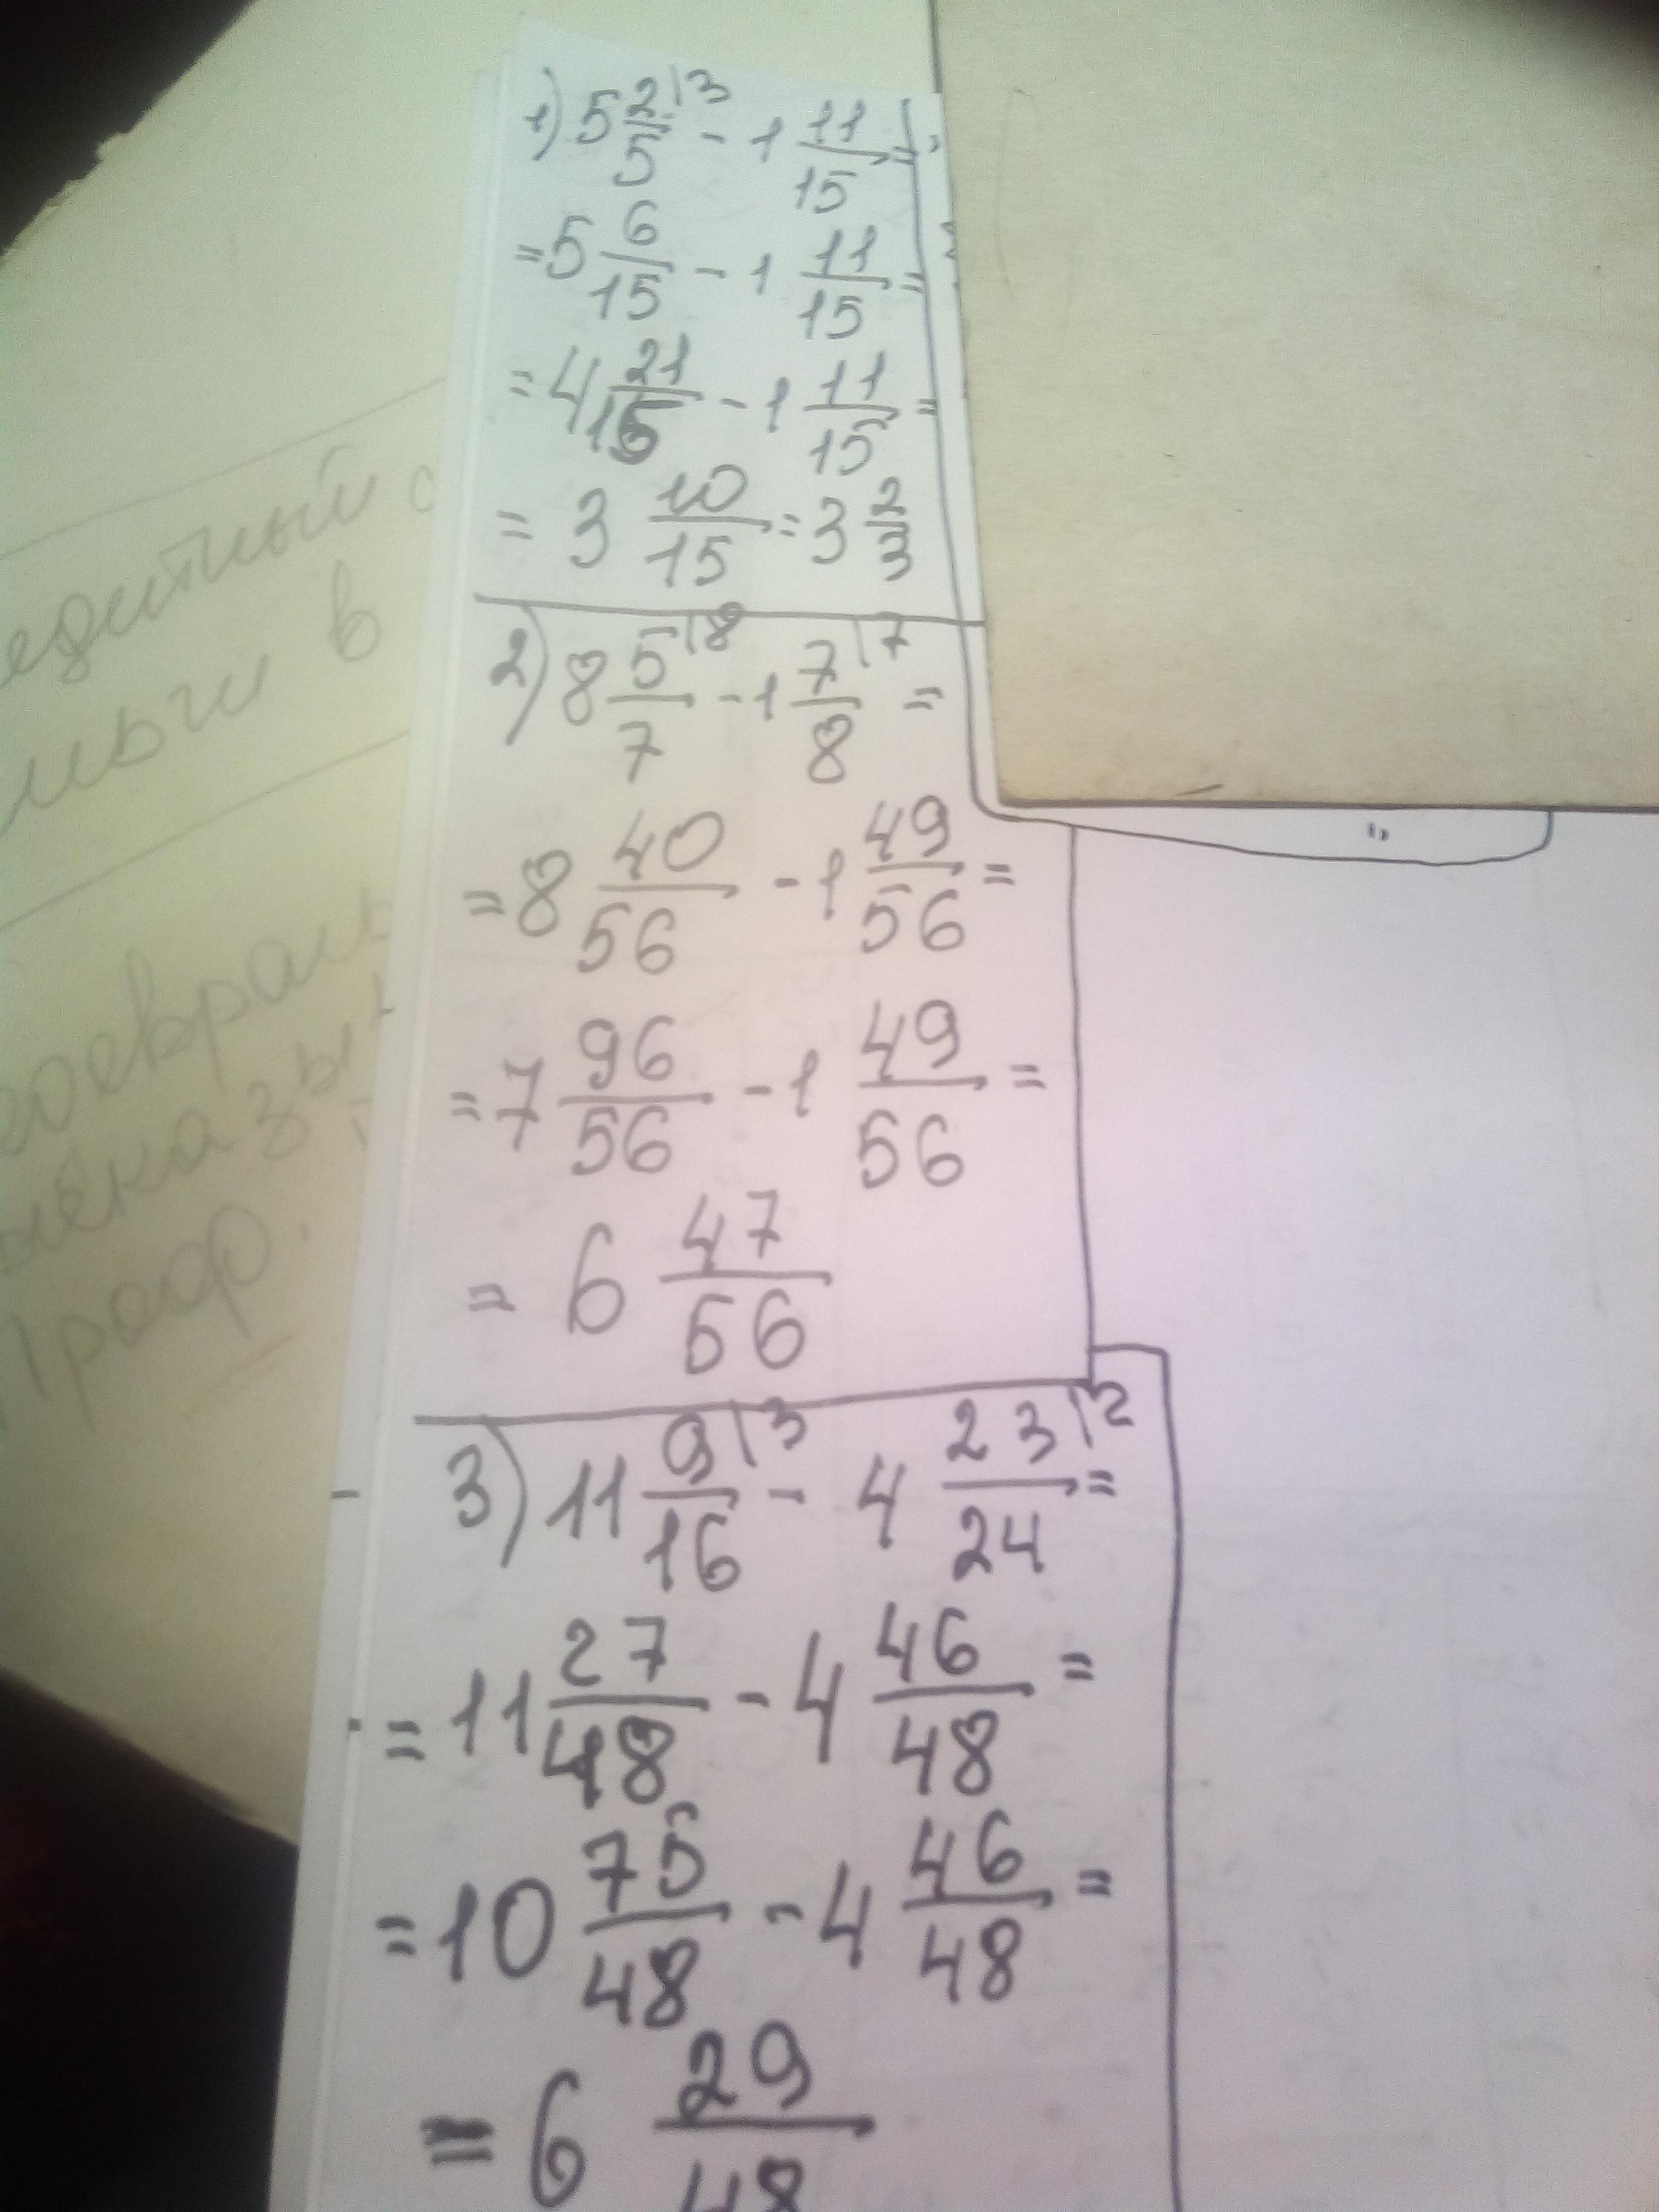 1) 5 2/5 \3 - 1 11/15 =
= 5 6/15 - 1 11/15 =
= 4 21/15 - 1 11/15 =
= 3 10/15 = 3 2/3
2) 8 5/7 \8 - 1 7/8 \7 =
= 8 40/56 - 1 49/56 =
= 7 96/56 - 1 49/56 =
= 6 47/56
3) 11 9/16 \3 - 4 23/24 \2 =
= 11 27/48 - 4 46/48 =
= 10 75/48 - 4 46/48 =
= 6 29/48